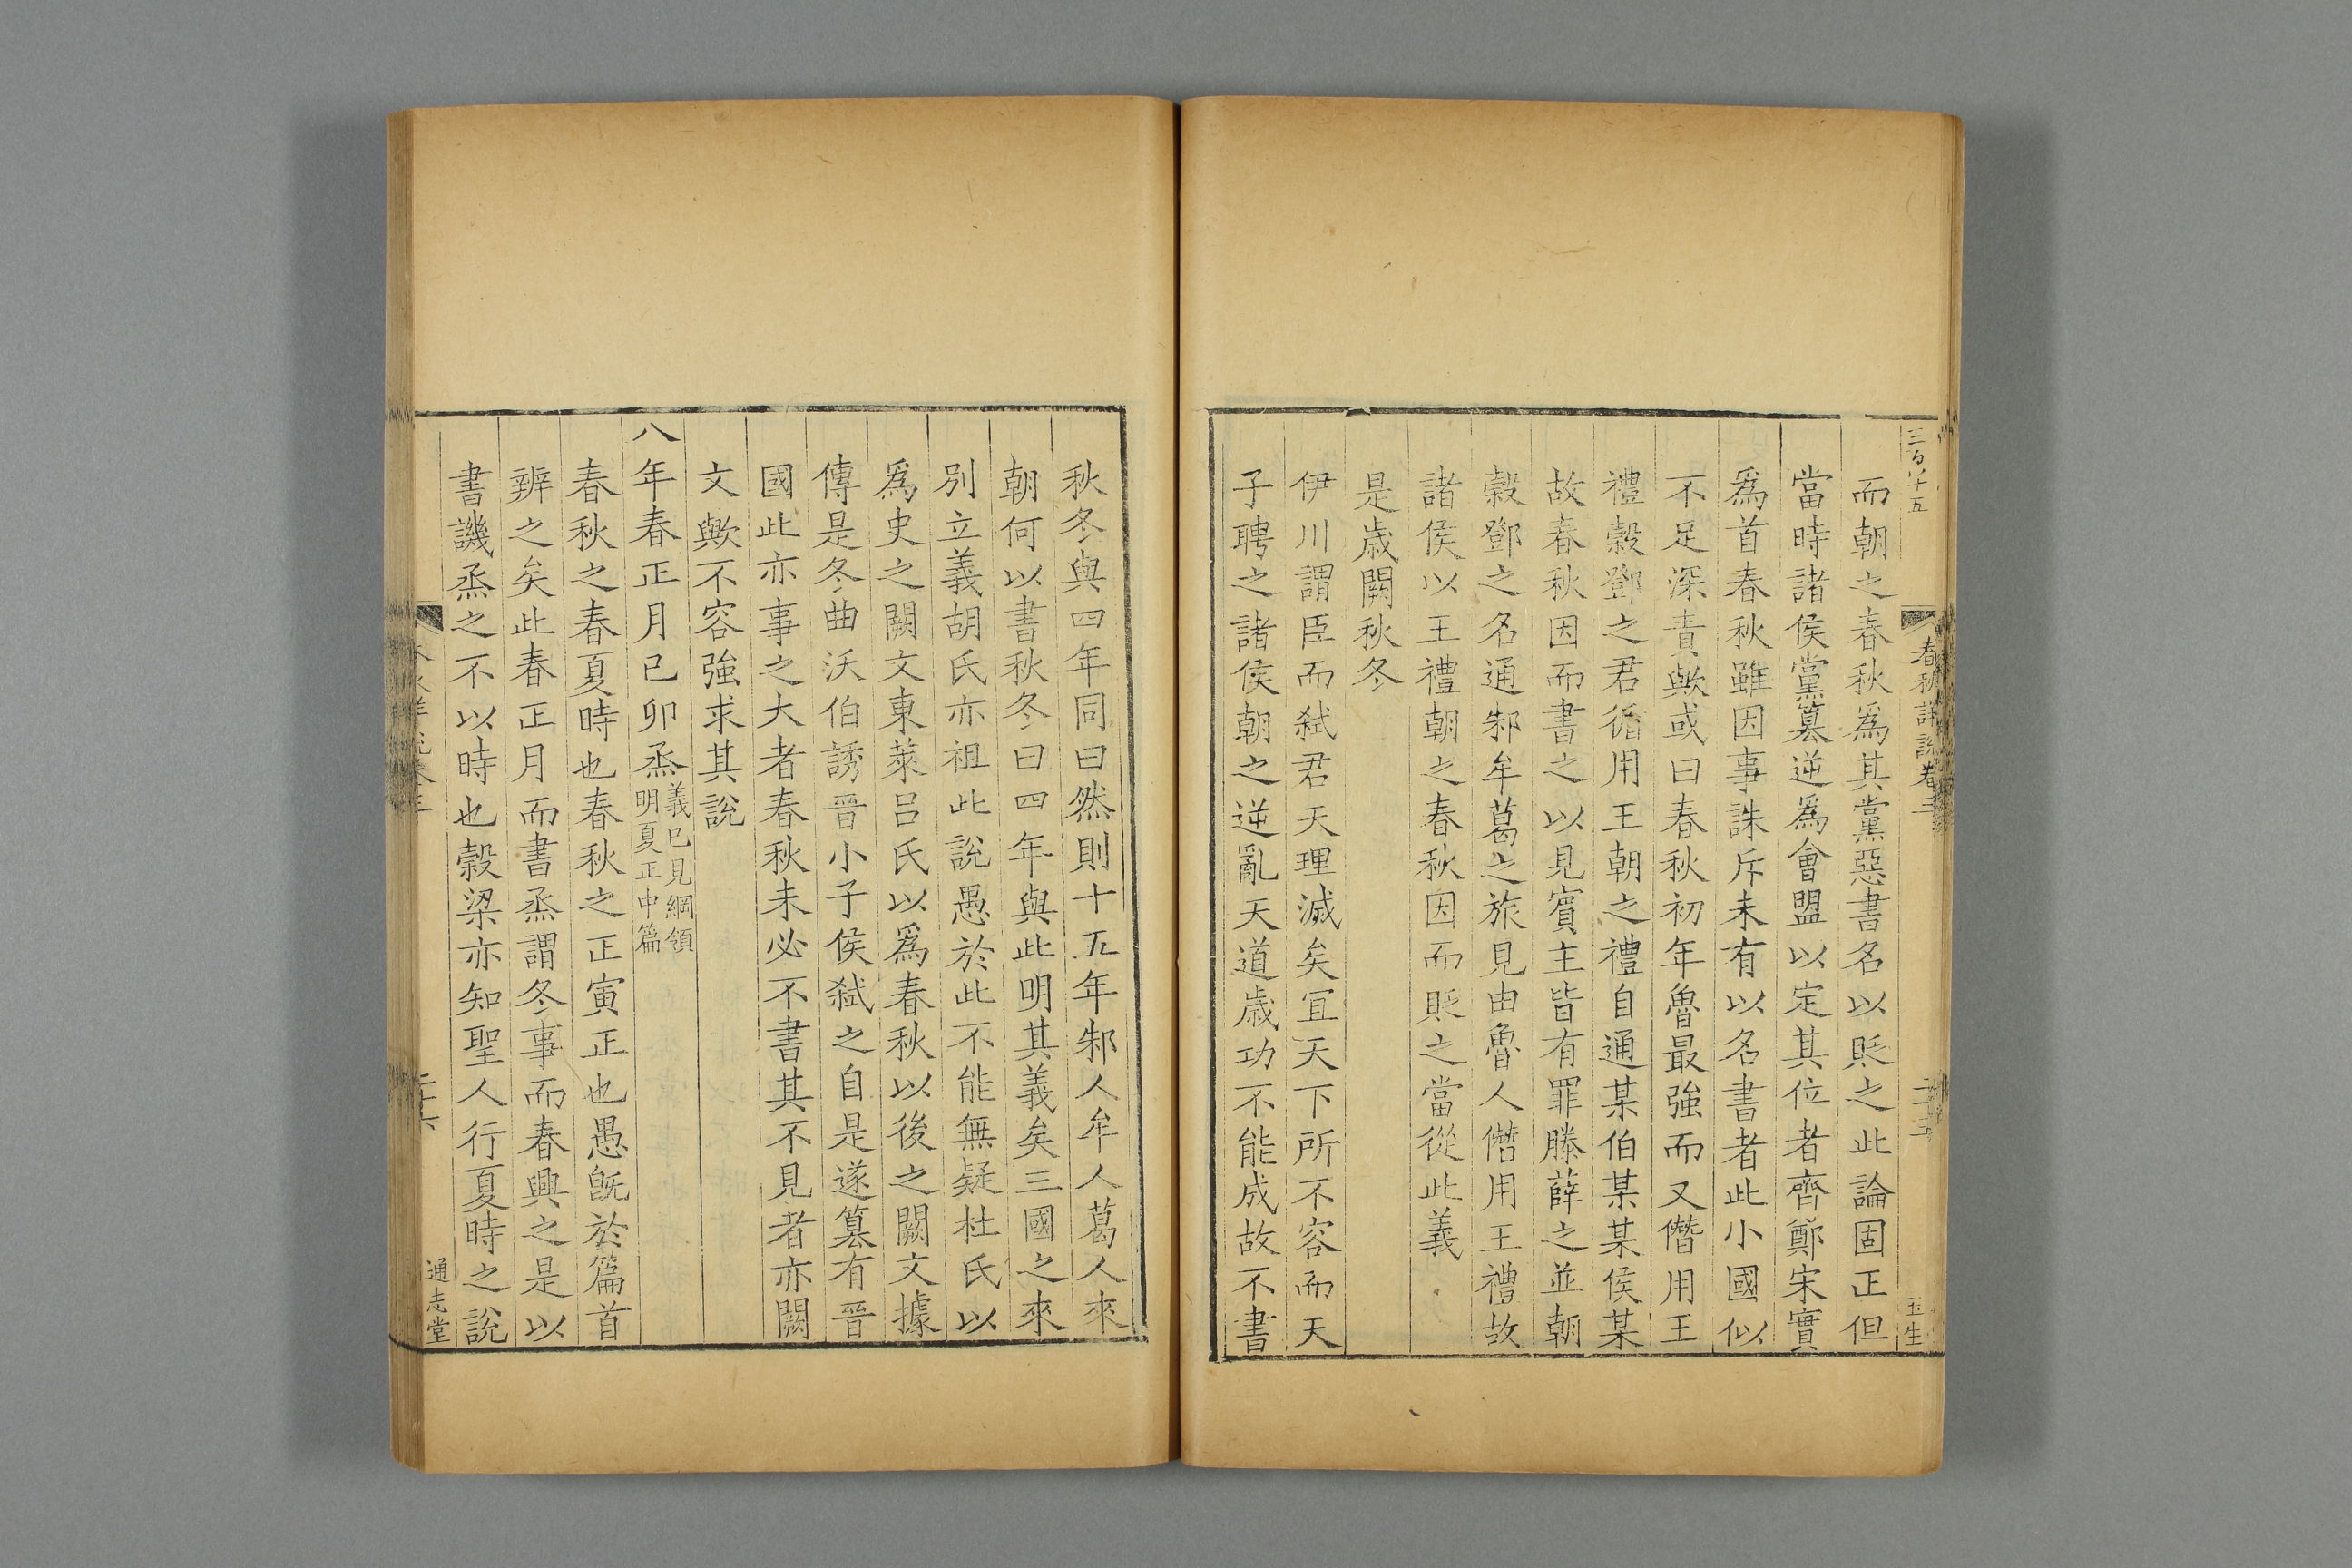 春秋詳說卷三
玉生
而朝之春秋爲其黨惡書名以貶之此論固正但
當時諸侯黨篡逆爲會盟以定其位者齊鄭宋實
爲首春秋雖因事誅斥未有以名書者此小國似
不足深責歟或曰春秋初年魯最強而又僭用王
禮穀鄧之君循用王朝之禮自通某伯某某侯某
故春秋因而書之以見賓主皆有罪滕薛之並朝
穀鄧之名通邾牟葛之旅見由魯人僭用王禮故
諸侯以王禮朝之春秋因而貶之當從此義
是歲闕秋冬
伊川謂臣而弑君天理滅矣宜天下所不容而天
子聘之諸侯朝之逆亂天道歲功不能成故不書
秋冬與四年同曰然則十五年邾人牟人葛人來
朝何以書秋冬曰四年與此明其義矣三國之來
別立義胡氏亦祖此說愚於此不能無疑杜氏以
爲史之闕文東萊呂氏以爲春秋以後之闕文據
傳是冬曲沃伯誘晉小子侯弑之自是遂篡有晉
國此亦事之大者春秋未必不書其不見者亦闕
文歟不容強求其說
八年春正月己卯烝義已見綱領
明夏正中篇
春秋之春夏時也春秋之正寅正也愚旣於篇首
辨之矣此春正月而書烝謂冬事而春興之是以
書譏烝之不以時也穀梁亦知聖人行夏時之說
通志堂